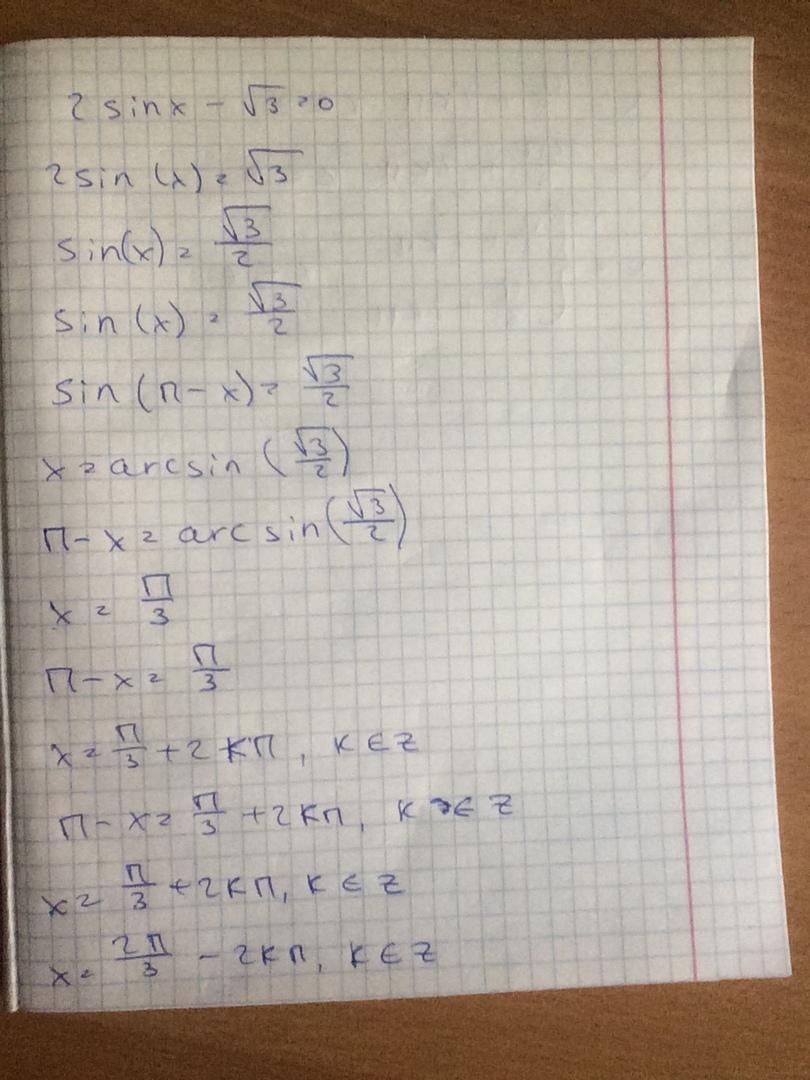 2 sinx - √3 = 0
2 sin (x) = √3
sin(x) = √3/2
sin (x) = √3/2
sin (π - x) = √3/2
x = arcsin (√3/2)
π - x = arcsin(√3/2)
x = π/3
π - x = π/3
x = π/3 + 2kπ, k ∈ Z
π - x = π/3 + 2kπ, k ∈ Z
x = π/3 + 2kπ, k ∈ Z
x = 2π/3 - 2kπ, k ∈ Z